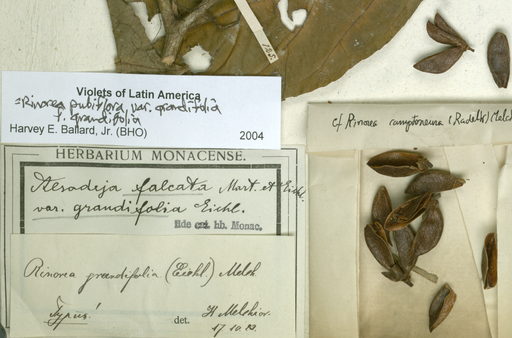 Violets of Latin America
=Rinorea pubiflora var. grandifolia
f. grandifolia
Harvey E. Ballard, Jr. (BHO) 2004
HERBARIUM MONACENSE.
Alsodeja falcata Mart. et Eichl.
var. grandifolia Eichl.
hb. Monac.
Rinorea grandifolia (Eichl.) Melch
Typus! det. H Melchior.
cf Rinorea camptoneura (Radlk)